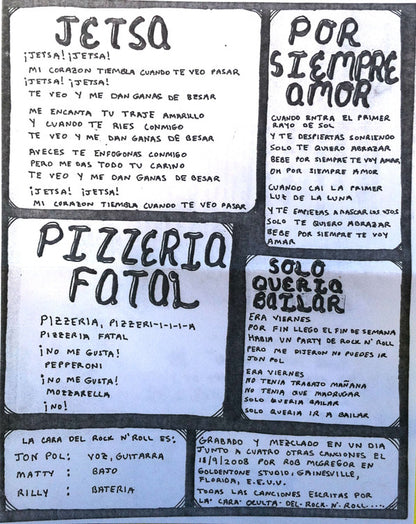 JETSA
¡JETSA! ¡JETSA!
MI CORAZON TIEMBLA CUANDO TE VEO PASAR
¡JETSA! ¡JETSA!
TE VEO Y ME DAN GANAS DE BESAR
ME ENCANTA TU TRAJE AMARILLO
Y CUANDO TE RIES CONMIGO
TE VEO Y ME DAN GANAS DE BESAR
AVECES TE ENFOGONAS CONMIGO
PERO ME DAS TODO TU CARINO
TE VEO Y ME DAN GANAS DE BESAR
¡JETSA! ¡JETSA!
MI CORAZON TIEMBLA CUANDO TE VEO PASAR
POR
SIEMPRE
AMOR
CUANDO ENTRA EL PRIMER
RAYO DE SOL
Y TE DESPIERTAS SONRIENDO
SOLO TE QUIERO ABRAZAR
BEBE POR SIEMPRE TE VOY AMAR
OH POR SIEMPRE AMOR
CUANDO CAI LA PRIMER
LUZ DE LA LUNA
Y TE EMPIEZAS A RASCAR LOS OJOS
SOLO TE QUIERO ABRAZAR
BEBE POR SIEMPRE TE VOY
AMAR
PIZZERIA
FATAL
PIZZERIA, PIZZERI-I-I-I-A
PIZZERIA FATAL
¡NO ME GUSTA!
PEPPERONI
¡NO ME GUSTA!
MOZZARELLA
¡NO!
SOLO
QUERIA
BAILAR
ERA VIERNES
POR FIN LLEGO EL FIN DE SEMANA
HABIA UN PARTY DE ROCK N' ROLL
PERO ME DIJERON NO PUEDES IR
JON POL
ERA VIERNES
NO TENIA TRABAJO MAÑANA
NO TENIA QUE MADRUGAR
SOLO QUERIA BAILAR
SOLO QUERIA IR A BAILAR
LA CARA DEL ROCK N' ROLL ES:
JON POL: VOZ, GUITARRA
MATTY: BAJO
RILLY: BATERIA
GRABADO Y MEZCLADO EN UN DIA
JUNTO A CUATRO OTRAS CANCIONES EL
18/9/2008 POR ROB MCGREGOR EN
GOLDENTONE STUDIO, GAINESVILLE,
FLORIDA, E.E.U.U.
TODAS LAS CANCIONES ESCRITAS POR
LA CARA OCULTA DEL ROCK N' ROLL....